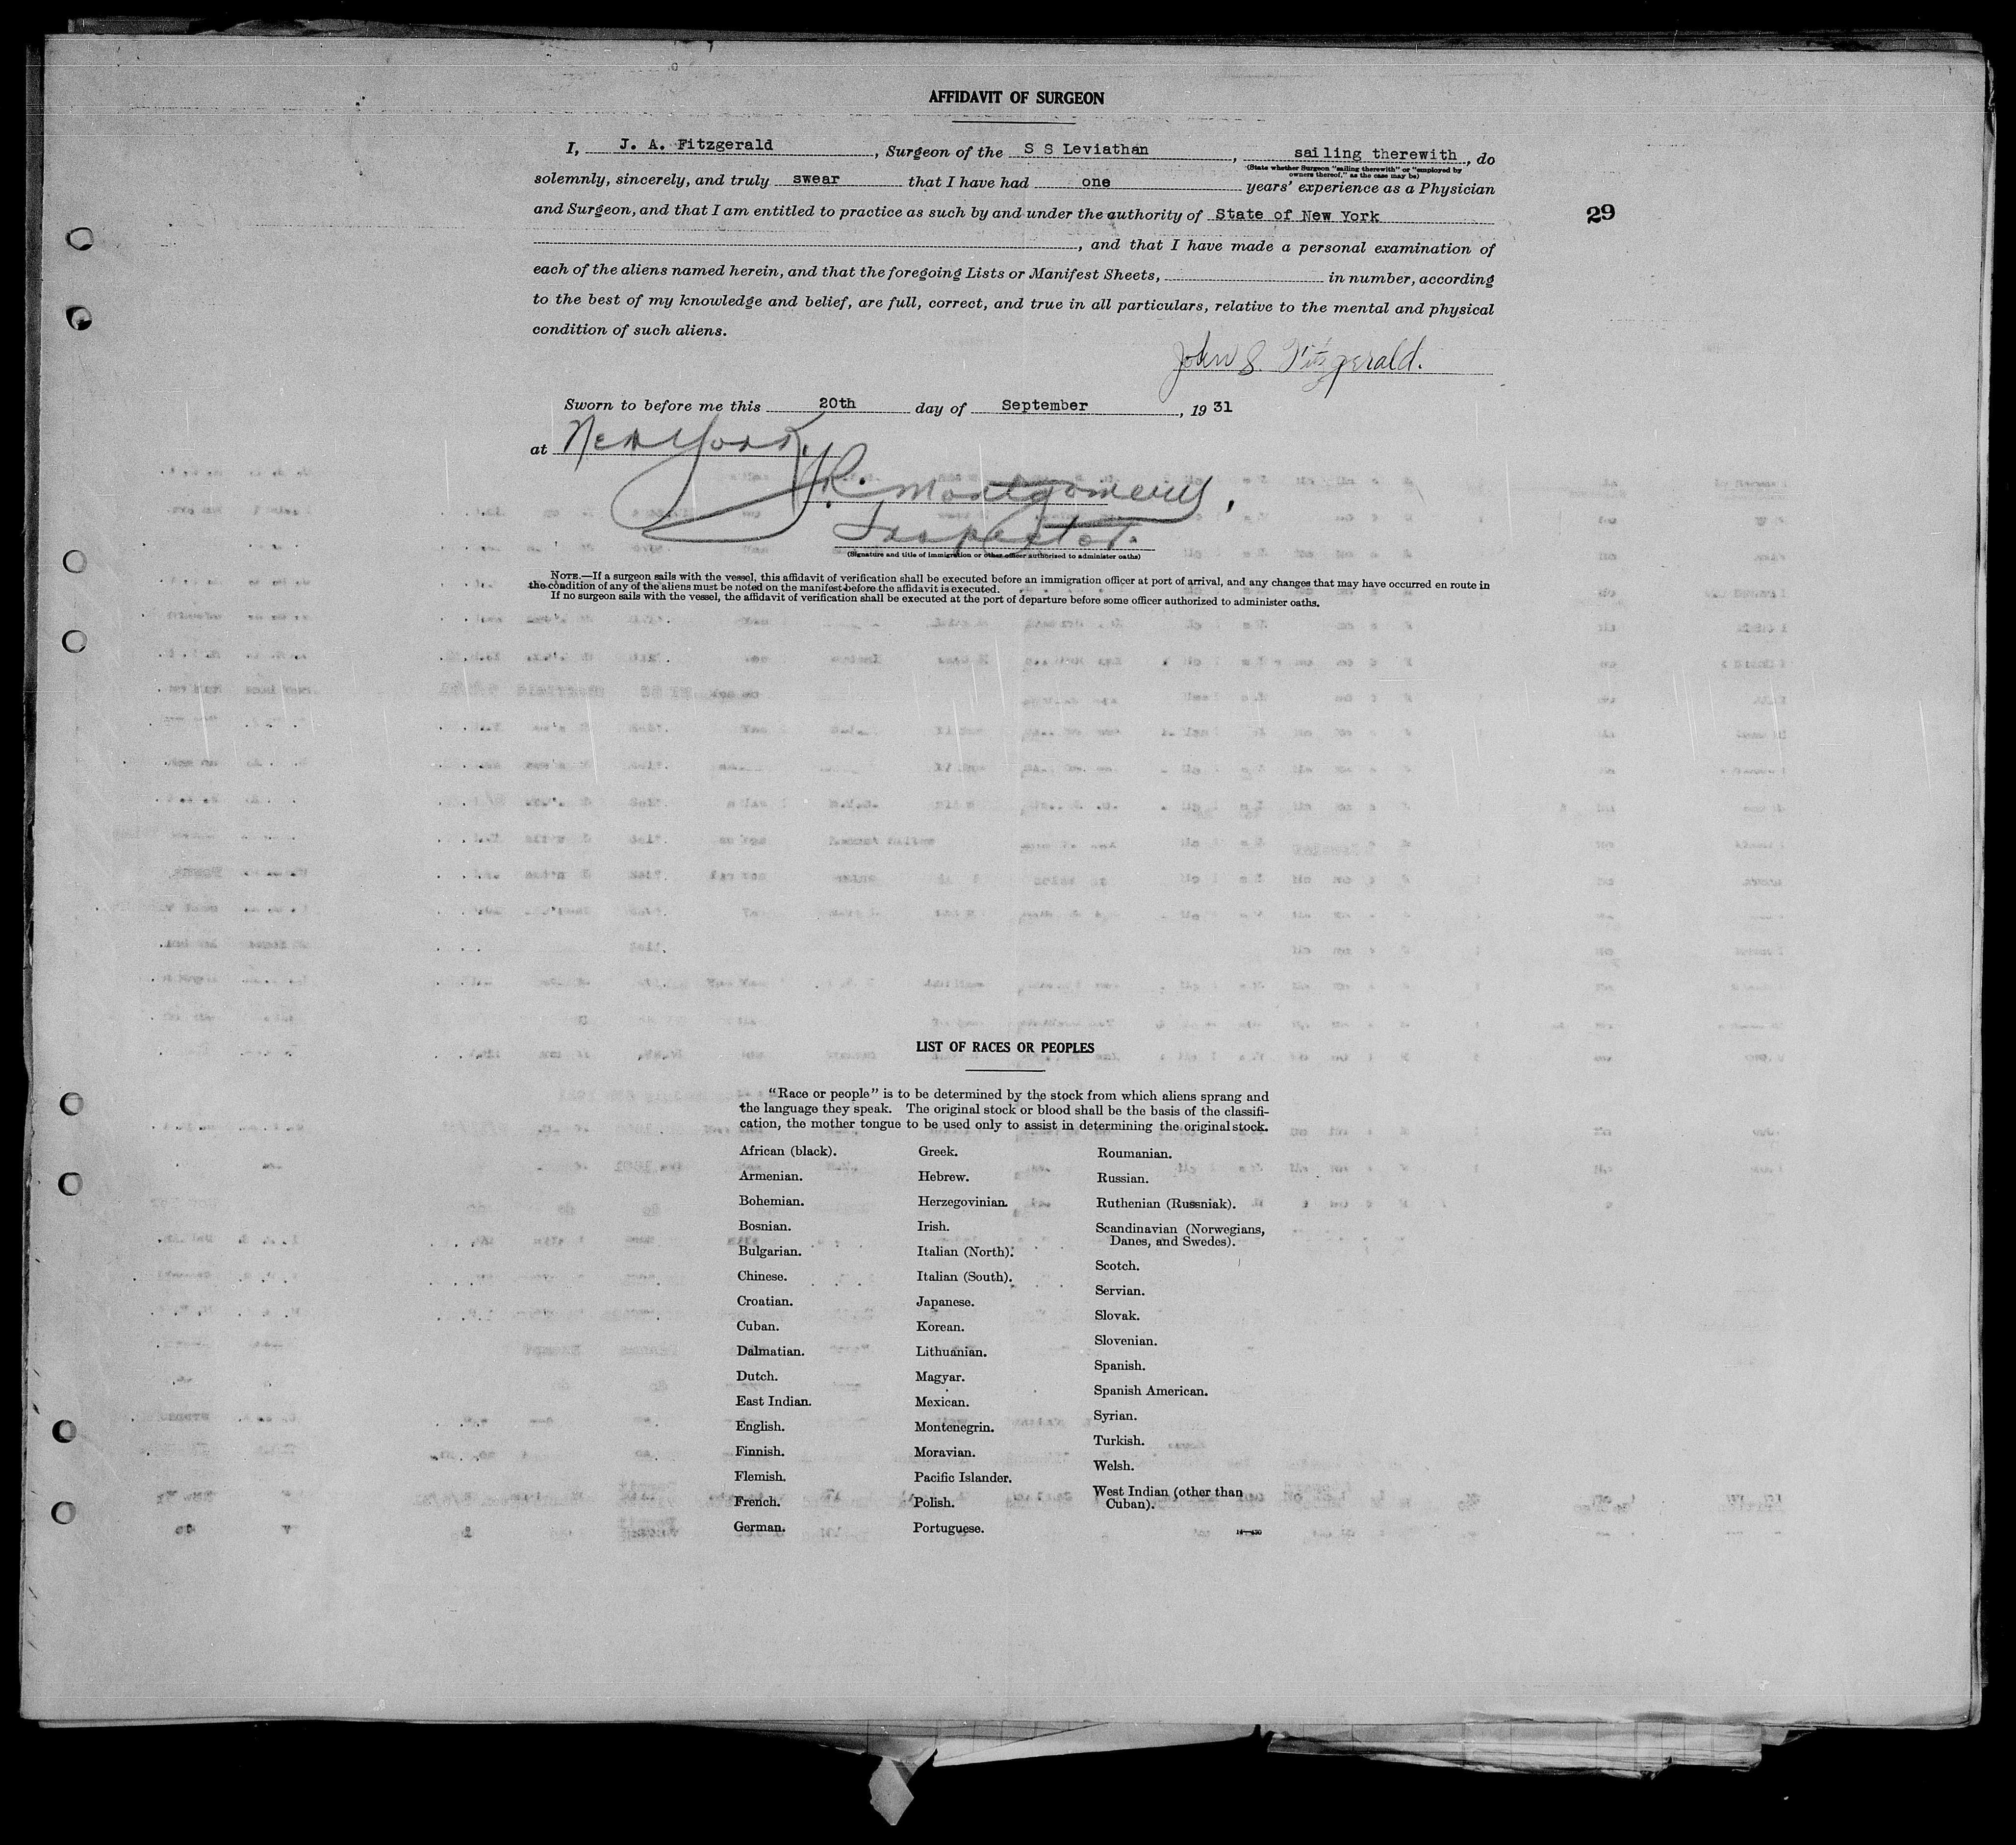 AFFIDAVIT OF SURGEON
I, J. A. Fitzgerald, Surgeon of the S S Leviathan, sailing therewith, do
(State whether Surgeon "sailing therewith" or "employed by
owners thereof," as the case may be)
solemnly, sincerely, and truly swear that I have had one years' experience as a Physician
and Surgeon, and that I am entitled to practice as such by and under the authority of State of New York
29
, and that I have made a personal examination of
each of the aliens named herein, and that the foregoing Lists or Manifest Sheets, in number, according
to the best of my knowledge and belief, are full, correct, and true in all particulars, relative to the mental and physical
condition of such aliens.
John S. Fitzgerald.
Sworn to before me this 20th day of September, 1931
at New York,
J.R. Montgomery,
Inspector.
(Signature and title of immigration or other officer authorized to administer oaths)
NOTE.—If a surgeon sails with the vessel, this affidavit of verification shall be executed before an immigration officer at port of arrival, and any changes that may have occurred en route in
the condition of any of the aliens must be noted on the manifest before the affidavit is executed.
If no surgeon sails with the vessel, the affidavit of verification shall be executed at the port of departure before some officer authorized to administer oaths.
LIST OF RACES OR PEOPLES
"Race or people" is to be determined by the stock from which aliens sprang and
the language they speak. The original stock or blood shall be the basis of the classifi-
cation, the mother tongue to be used only to assist in determining the original stock.
African (black).
Armenian.
Bohemian.
Bosnian.
Bulgarian.
Chinese.
Croatian.
Cuban.
Dalmatian.
Dutch.
East Indian.
English.
Finnish.
Flemish.
French.
German.
Greek.
Hebrew.
Herzegovinian.
Irish.
Italian (North).
Italian (South).
Japanese.
Korean.
Lithuanian.
Magyar.
Mexican.
Montenegrin.
Moravian.
Pacific Islander.
Polish.
Portuguese.
Roumanian.
Russian.
Ruthenian (Russniak).
Scandinavian (Norwegians,
Danes, and Swedes).
Scotch.
Servian.
Slovak.
Slovenian.
Spanish.
Spanish American.
Syrian.
Turkish.
Welsh.
West Indian (other than
Cuban).
14—430